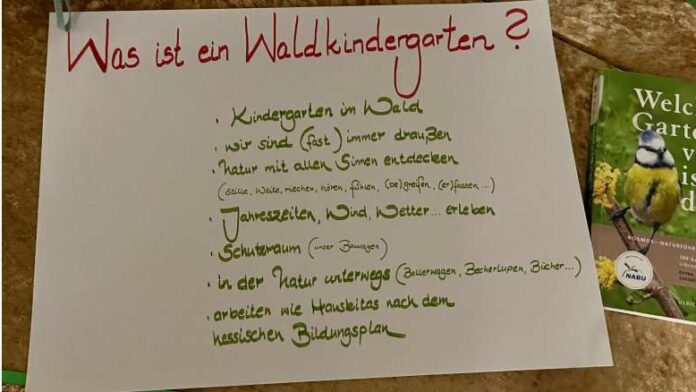 Was ist ein Waldkindergarten?
· Kindergarten im Wald
· wir sind (fast) immer draußen
· Natur mit allen Sinnen entdecken
(Stille, Weite, riechen, hören, fühlen, (be)greifen, (er)fassen...)
· Jahreszeiten, Wind, Wetter... erleben
· Schutzraum (unser Bauwagen)
· in der Natur unterwegs (Bollerwagen, Becherlupen, Bücher...)
· arbeiten wie Hauskitas nach dem
hessischen Bildungsplan
Welc
Garte
v
is
d
KOSMOS-NATURFÜH
NABU
EXTRA
ULRIC